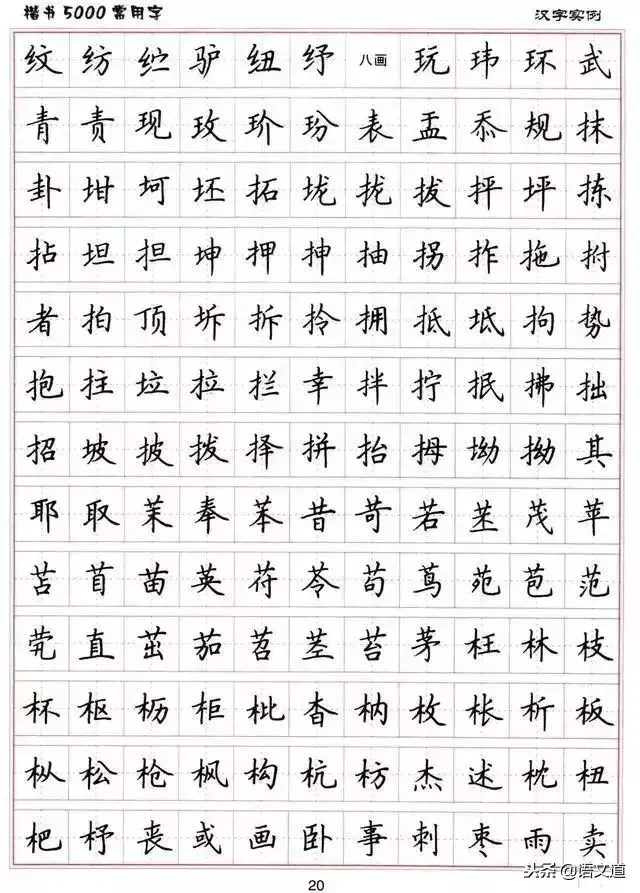 楷书5000常用字 汉字实例
纹 纺 纻 驴 纽 纾 八画 玩 玮 环 武
青 责 现 玫 玠 玢 表 盂 忝 规 抹
卦 坩 坷 坯 拓 垅 拢 拔 抨 坪 拣
拈 坦 担 坤 押 抻 抽 拐 拃 拖 拊
者 拍 顶 坼 拆 拎 拥 抵 坻 拘 势
抱 拄 垃 拉 拦 幸 拌 拧 抿 拂 拙
招 坡 披 拨 择 拼 抬 拇 坳 拗 其
耶 取 茉 奉 苯 昔 苛 若 苤 茂 苹
苫 苜 苗 英 苻 苓 苟 茑 苑 苞 范
茕 直 茁 茄 苕 茎 苔 茅 枉 林 枝
杯 枢 枥 柜 枇 杳 枘 枚 枨 析 板
枞 松 枪 枫 构 杭 枋 杰 述 枕 杻
杷 杼 丧 或 画 卧 事 刺 枣 雨 卖
头条@语文道
20